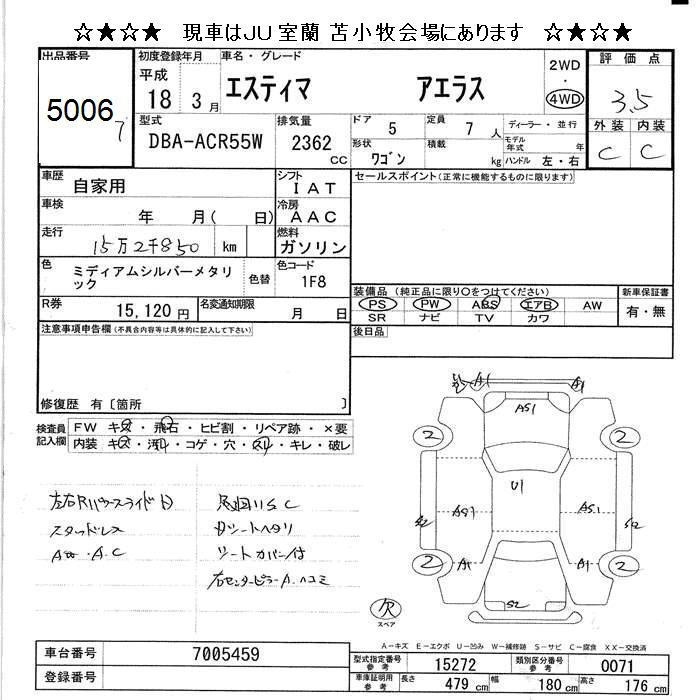 ☆★☆★ 現車はJU室蘭 苫小牧会場にあります ☆★☆★
出品番号
5006
7
初度登録年月
平成
18 3月
車名・グレード
エスティマ アエラス
2WD
・
4WD
評価点
3.5
外装 内装
C C
型式
DBA-ACR55W
排気量
2362
cc
ドア
5
定員
7 人
ディーラー・並行
形状
ワゴン
積載
kg
モデル年式 年
ハンドル 左・右
車歴
自家用
シフト
IAT
セールスポイント(正常に機能するものに限ります)
車検
年 月( 日)
冷房
AAC
走行
15万2千850 km
燃料
ガソリン
色
ミディアムシルバーメタリック
色替
色コード
1F8
R券
15,120円
名変通知期限
月 日
装備品 (純正品に限り○をつけてください)
PS PW ABS エアB AW
SR ナビ TV カワ
新車保証書
有・無
注意事項申告欄(不具合内容等は具体的に記入して下さい)
後日品
修復歴 有〔箇所 〕
検査員記入欄
FW キズ・飛石・ヒビ割・リペア跡・×要
内装 キズ・汚レ・コゲ・穴・スレ・キレ・破レ
左右Rパワースライド
スタッドレス
A・A.C
足廻りSC
シートカバー付
右センターピラーA.ヘコミ
A1
AS1
2
2
U1
AS1
AS1
S2
S2
A1
A1
2
2
S2
欠
スペア
A-キズ E-エクボ U-凹み W-補修跡 S-サビ C-腐食 XX-交換済
車台番号
7005459
登録番号
型式指定番号
参考
15272
類別区分番号
参考
0071
車庫証明用
参考
長さ
479 cm
幅
180 cm
高さ
176 cm